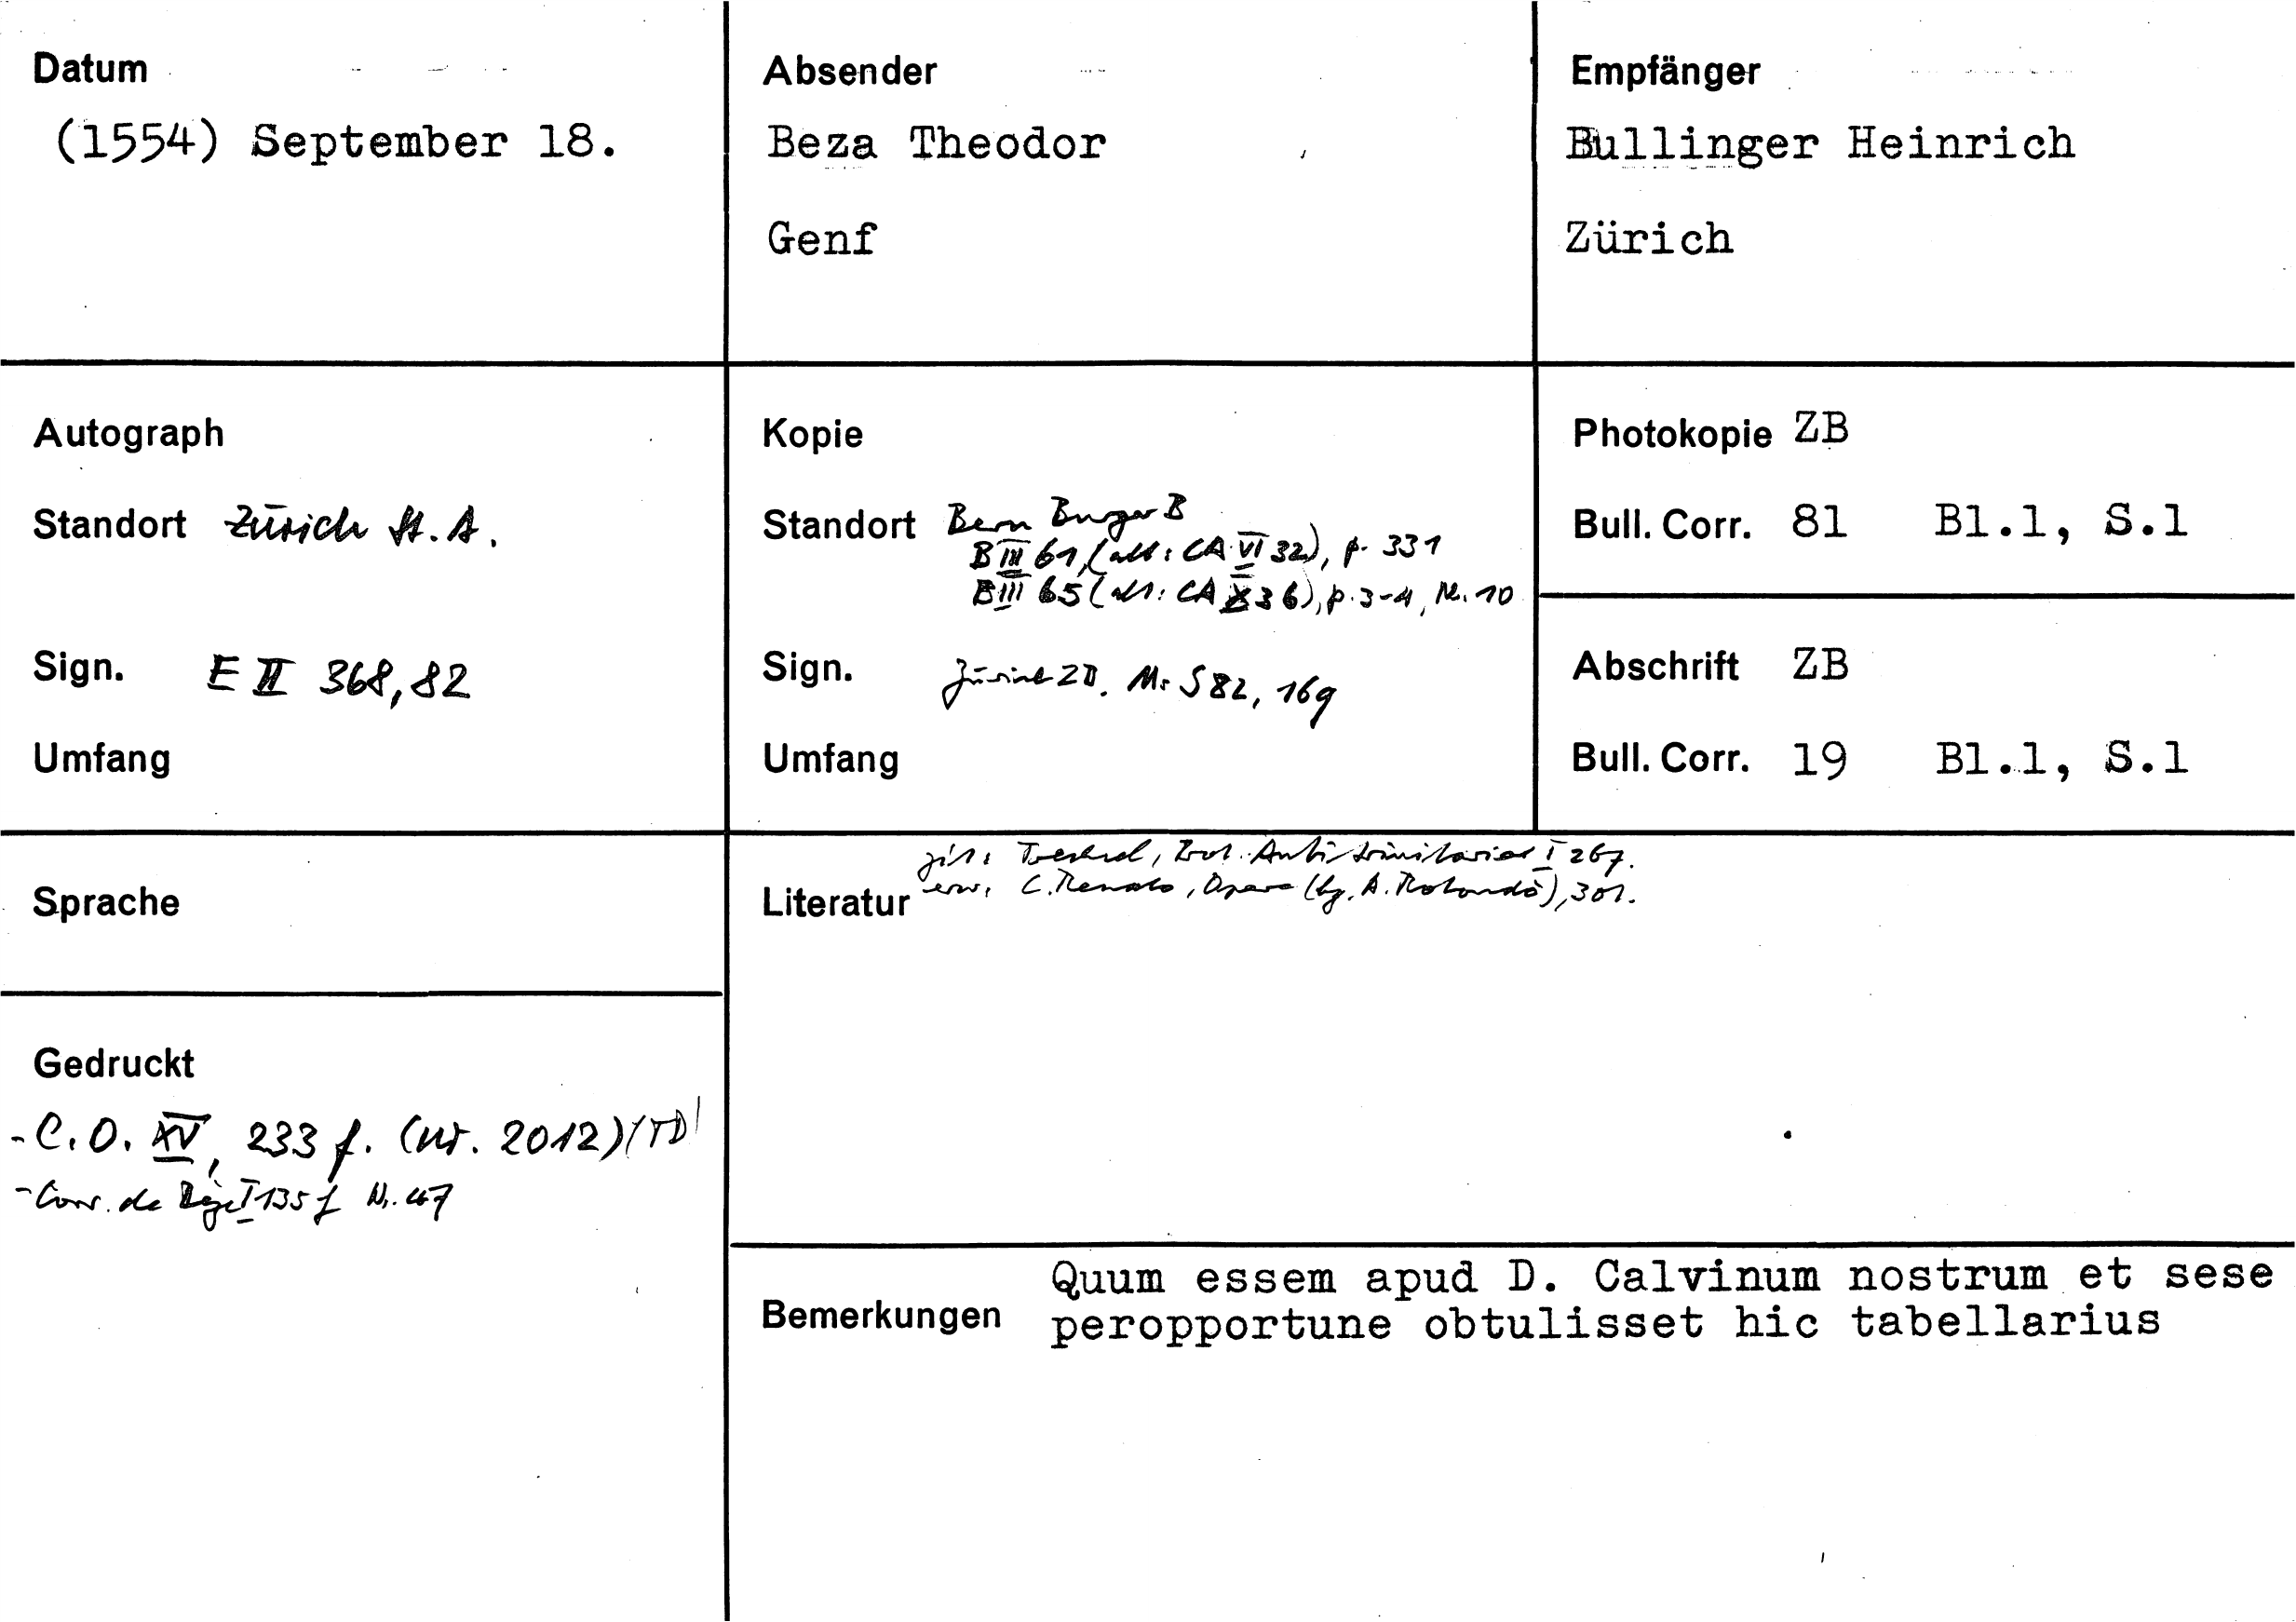 Datum
(1554) September 18.
Absender
Beza Theodor
Genf
Empfänger
Bullinger Heinrich
Zürich
Autograph
Standort Zürich St. A.
Sign. E II 368,82
Umfang
Kopie
Standort Bern BurgerB
B III 61, (alt: CA VI 32), p. 331
B III 65 (alt: CA X 36), p. 3-4, Nr. 10
Sign. Zürich ZB. Ms S 82, 169
Umfang
Photokopie ZB
Bull. Corr. 81 Bl.1, S.1
Abschrift ZB
Bull. Corr. 19 Bl.1, S.1
Sprache
Gedruckt
- C.O. XV, 233 f. (Nr. 2012) (TD)
- Corr. de Bèze I 135 f Nr. 47
zit: Trechsel, Prot. Antitrinitarier I 267.
Literatur erw: C. Renato, Opere (hg. A. Rotondò), 301.
Bemerkungen
Quum essem apud D. Calvinum nostrum et sese
peropportune obtulisset hic tabellarius